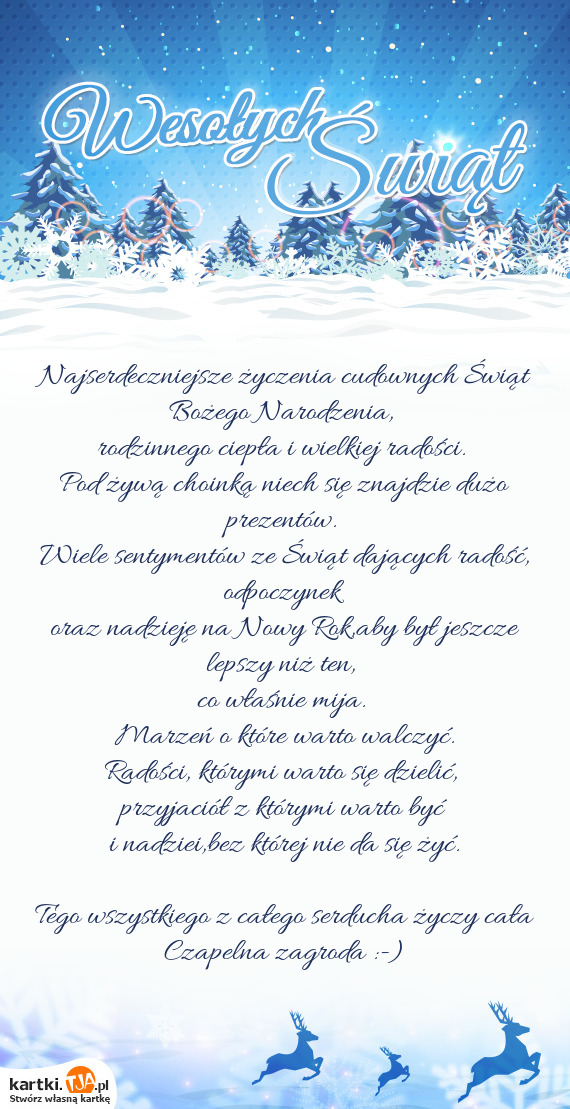 Wesołych
Świąt
Najserdeczniejsze życzenia cudownych Świąt
Bożego Narodzenia,
rodzinnego ciepła i wielkiej radości.
Pod żywą choinką niech się znajdzie dużo
prezentów.
Wiele sentymentów ze Świąt dających radość,
odpoczynek
oraz nadzieję na Nowy Rok,aby był jeszcze
lepszy niż ten,
co właśnie mija.
Marzeń o które warto walczyć.
Radości, którymi warto się dzielić,
przyjaciół z którymi warto być
i nadziei,bez której nie da się żyć.
Tego wszystkiego z całego serducha życzy cała
Czapelna zagroda :-)
kartki.TJA.pl
Stwórz własną kartkę